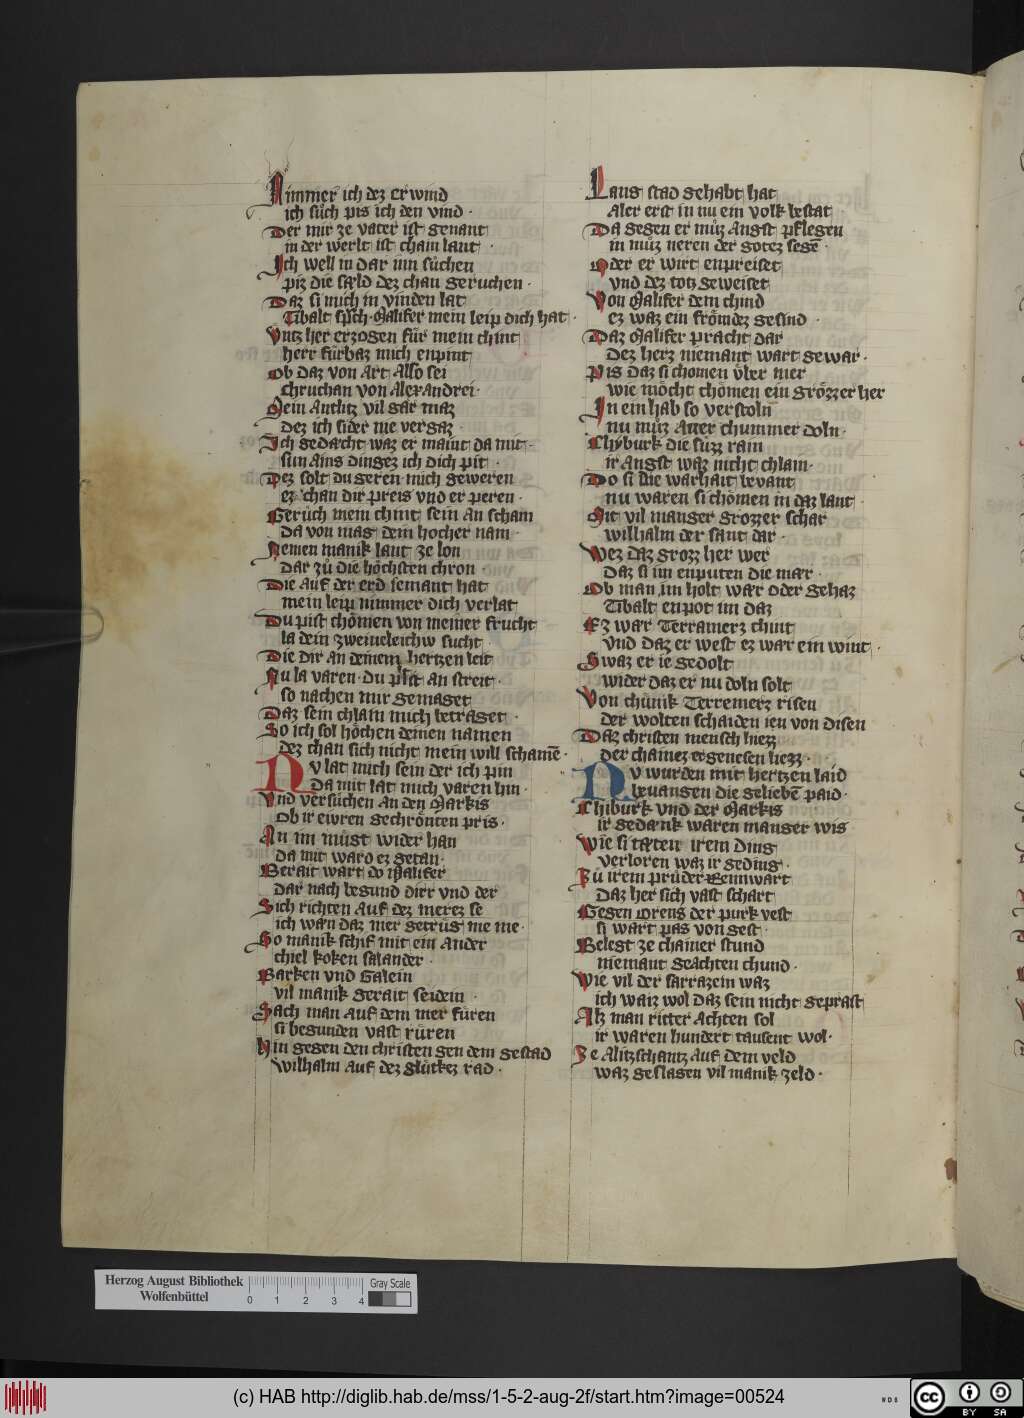 Nimmer ich dez erwind
ich süch pis ich den vind ·
Der mir ze vater ist genant
in der werlt ist chain lant ·
Ich well in dar inn süchen
piz die sæld dez chan geruchen ·
Daz si mich in vinden lat
Tibalt sp̃ch · Malifer mein leip dich hat ·
Vntz her erzogen für mein chint
herr fürbaz mich enpint
Ob daz von art also sei
chruchan von Alexandrei ·
Mein antlitz vil gar maz
dez ich sider nie vergaz ·
Ich gedacht waz er maint da mit ·
sun ains dingez ich dich pit ·
Dez solt du geren mich geweren
ez chan dir preis vnd er peren ·
Gerüch mein chint sein an scham
da von mag dem hocher nam ·
Nemen manik lant ze lon
dar zü die höchsten chron ·
Die auf der erd iemant hat
mein leip nimmer dich verlat
Du pist chömen von meiner frucht
la dein zweineleichw sucht ·
Die dir an deinem hertzen leit
Nu la varen · du pist an streit ·
so nachen mir gemaget
Daz sein chlain mich betraget ·
So ich sol höchen deinen namen
dez chan sich nicht mein will schamē ·
Nv lat mich sein der ich pin
Da mit lat mich varen hin ·
Vnd versüchen an den Markis
Ob ir ewren gechrönten pris ·
An im müst wider han
da mit waro ez getan ·
Berait wart do Malifer
dar nach begund dirr vnd der
Sich richten auf dez merez se
ich wæn daz mer getrüg nie me ·
So manik schif mit ein ander
chiel koken salander ·
Barken vnd Galein
vil manik gerait seidein ·
Sach man auf dem mer füren
si begunden vast rüren
Hin gegen den christen gen dem gestad
Wilhalm auf dez glütkez rad ·
Lang stad gehabt hat
Aler erst in nu ein volk bestat
Da gegen er müz angst pflegen
in müz neren der gotez segē ·
Oder er wirt enpreiset
vnd dez totz geweiset
Von Malifer dem chind
ez waz ein frömdez gesind ·
Daz Malifer pracht dar
Dez herz niemant wart gewar ·
Pis daz si chomen über mer
wie möcht chömen ein grözzer her
In ein hab so verstoln
nu müz aller chummer doln ·
Chyburk die süzz rain
ir angst waz nicht chlain ·
Do si die warhait bevant
nu waren si chömen in daz lant ·
Mit vil manger grozzer schar
wilhalm der sant dar ·
Wez daz grozz her wer
daz si im enputen die mær ·
Ob man im holt wær oder gehaz
Tibalt enpot im daz
Ez wær Terramerz chint
vnd daz er west ez wær ein wint ·
Swaz er ie gedolt
wider daz er nu doln solt
Von chünik Terremerz risen
der wolten schaiden ieu von disen
Daz christen mensch hiezz
der chainez ergenesen liezz ·
Nv wurden mit hertzen laid
bevangen die geliebē paid ·
Chiburk vnd der Markis
ir gedænk waren manger wis
Wie si tæten irem ding
verloren waz ir geding ·
Zü irem prüder Rennwart
Daz her sich vast schart
Gegen Orens der purk vest
si wart pas von gest ·
Belegt ze chainer stund
niemant geachten chund ·
Wie vil der sarrazein waz
ich waiz wol daz sein nicht geprast
Alz man ritter achten sol
ir waren hundert tausent wol ·
Ze Alitzschantz auf dem veld
waz geslagen vil manik zeld ·
Herzog August Bibliothek
Wolfenbüttel
0 1 2 3 4
Gray Scale
(c) HAB http://diglib.hab.de/mss/1-5-2-aug-2f/start.htm?image=00524
WDB
cc BY SA